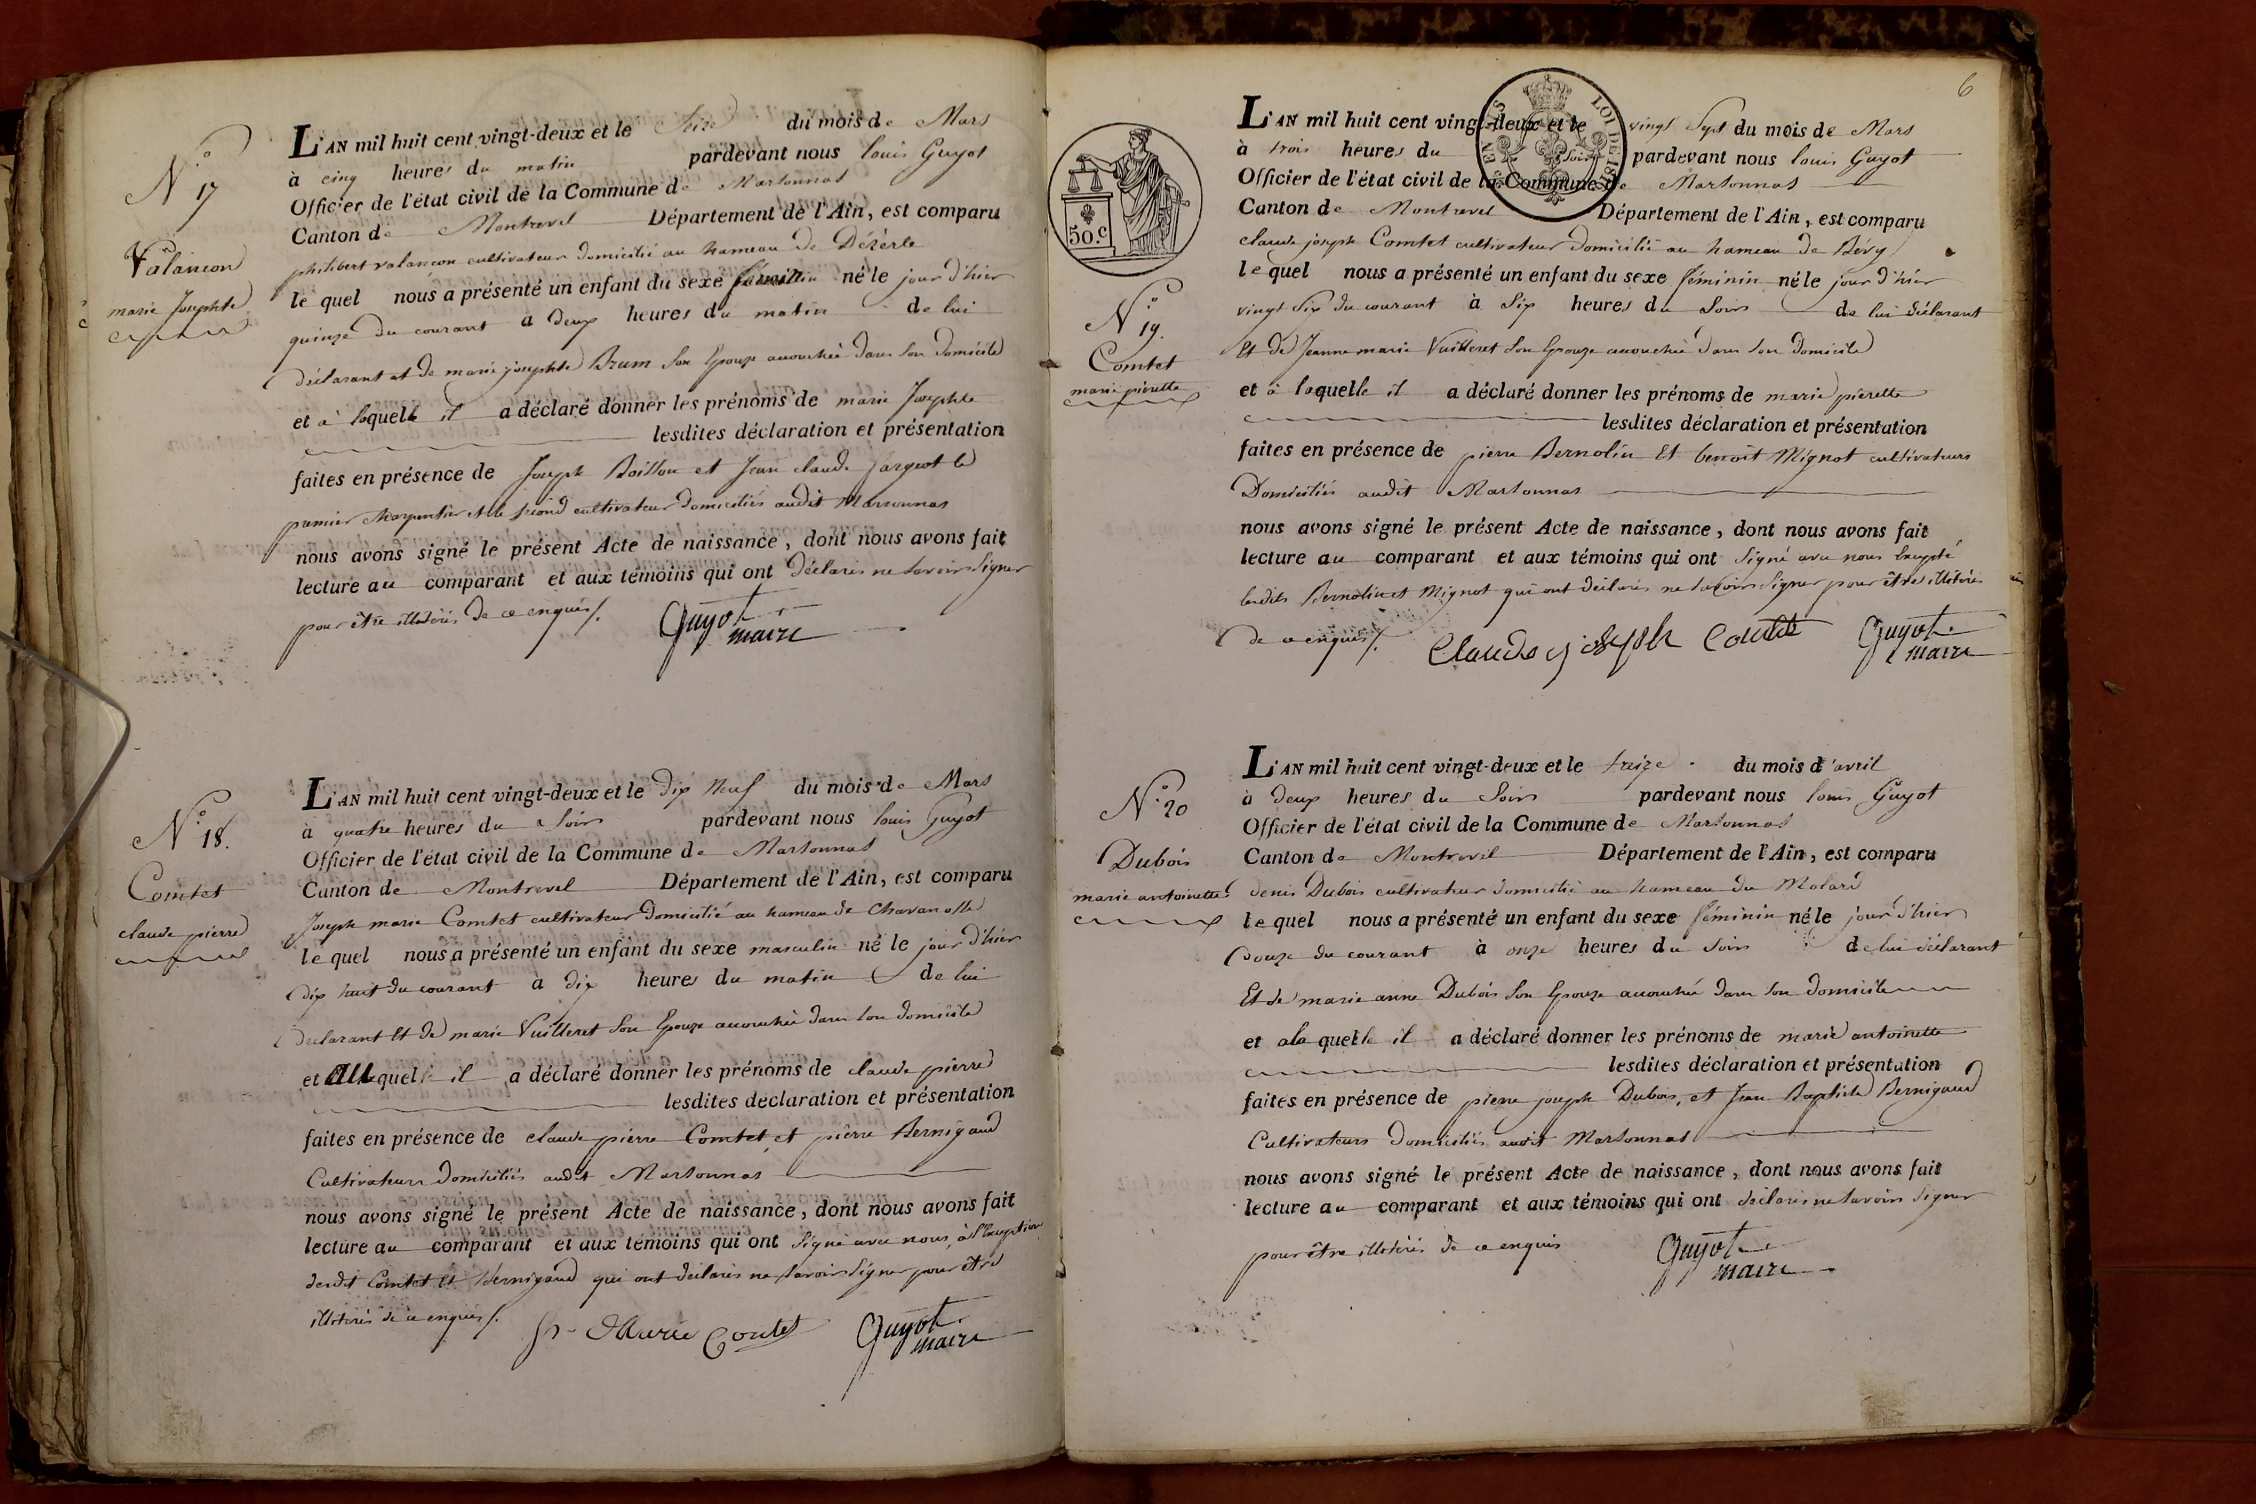 N.° 17
Valancon
marie Josephte
L'AN mil huit cent vingt-deux et le Seize du mois de Mars
à cinq heures du matin pardevant nous louis Guyot
Officier de l'état civil de la Commune de Marsonnas
Canton de Montrevel Département de l'Ain, est comparu
philibert valancon cultivateur domicilié au hameau de Dézerle
le quel nous a présenté un enfant du sexe féminin né le jour d'hier
quinze du courant à deux heures du matin de lui
déclarant et de marie josephte Brum son Epouze accouchée dans son domicile
et à laquelle il a déclaré donner les prénoms de marie Josephte
lesdites déclaration et présentation
faites en présence de Joseph Boillon et Jean claude Jarquot le
premier charpentier et le second cultivateur domiciliés audit Marsonnas
nous avons signé le présent Acte de naissance, dont nous avons fait
lecture au comparant et aux témoins qui ont déclarés ne savoir Signer
pour être illitérés de ce enquis/.
Guyot
maire
N.° 18.
Comtet
claude pierre
L'AN mil huit cent vingt-deux et le dix Neuf du mois de Mars
à quatre heures du Soir pardevant nous louis Guyot
Officier de l'état civil de la Commune de Marsonnas
Canton de Montrevel Département de l'Ain, est comparu
Joseph marie Comtet cultivateur domicilié au hameau de Chavanolle
le quel nous a présenté un enfant du sexe masculin né le jour d'hier
dix huit du courant à dix heures du matin de lui
déclarant Et de marie Vuilleret son Epouze accouchée dans son domicile
et Au quel il a déclaré donner les prénoms de claude pierre
lesdites déclaration et présentation
faites en présence de claude pierre Comtet et pierre Bernigaud
Cultivateurs domiciliés audit Marsonnas
nous avons signé le présent Acte de naissance, dont nous avons fait
lecture au comparant et aux témoins qui ont signé avec nous, à l'Exception
desdit Comtet Et Bernigaud qui ont déclarés ne savoir Signer pour être
illitérés de ce enquis/.
Jh Marie Contet
Guyot
maire
6
LOI DE 1816
50.c
N.° 19.
Comtet
marie piérette
L'AN mil huit cent vingt-deux et le vingt Sept du mois de Mars
à trois heures du Soir pardevant nous louis Guyot
Officier de l'état civil de la Commune de Marsonnas
Canton de Montrevel Département de l'Ain, est comparu
claude joseph Comtet cultivateur domicilié au hameau de Bévy
le quel nous a présenté un enfant du sexe féminin né le jour d'hier
vingt Six du courant à Six heures du Soir de lui déclarant
Et de Jeanne marie Vuilleret Son Epouze accouchée dans son domicile
et à laquelle il a déclaré donner les prénoms de marie piérette
lesdites déclaration et présentation
faites en présence de pierre Bernolin Et benoit Mignot cultivateurs
Domiciliés audit Marsonnas
nous avons signé le présent Acte de naissance, dont nous avons fait
lecture au comparant et aux témoins qui ont Signé avec nous Excepté
lesdits Bernolin et Mignot qui ont déclarés ne savoir Signer pour être illitérés
de ce enquis/.
Claude joseph Comtet
Guyot
maire
N.° 20
Dubois
marie antoinette
L'AN mil huit cent vingt-deux et le treize du mois d'avril
à deux heures du Soir pardevant nous louis Guyot
Officier de l'état civil de la Commune de Marsonnas
Canton de Montrevel Département de l'Ain, est comparu
denis Dubois cultivateur domicilié au hameau du Molard
le quel nous a présenté un enfant du sexe féminin né le jour d'hier
douze du courant à onze heures du Soir de lui déclarant
Et de marie anne Dubois Son Epouze accouchée dans son domicile
et a la quelle il a déclaré donner les prénoms de marie antoinette
lesdites déclaration et présentation
faites en présence de pierre joseph Dubois, et Jean Baptiste Bernigaud
Cultivateurs domiciliés audit Marsonnas
nous avons signé le présent Acte de naissance, dont nous avons fait
lecture au comparant et aux témoins qui ont déclarés ne savoir Signer
pour être illitérés de ce enquis
Guyot
maire